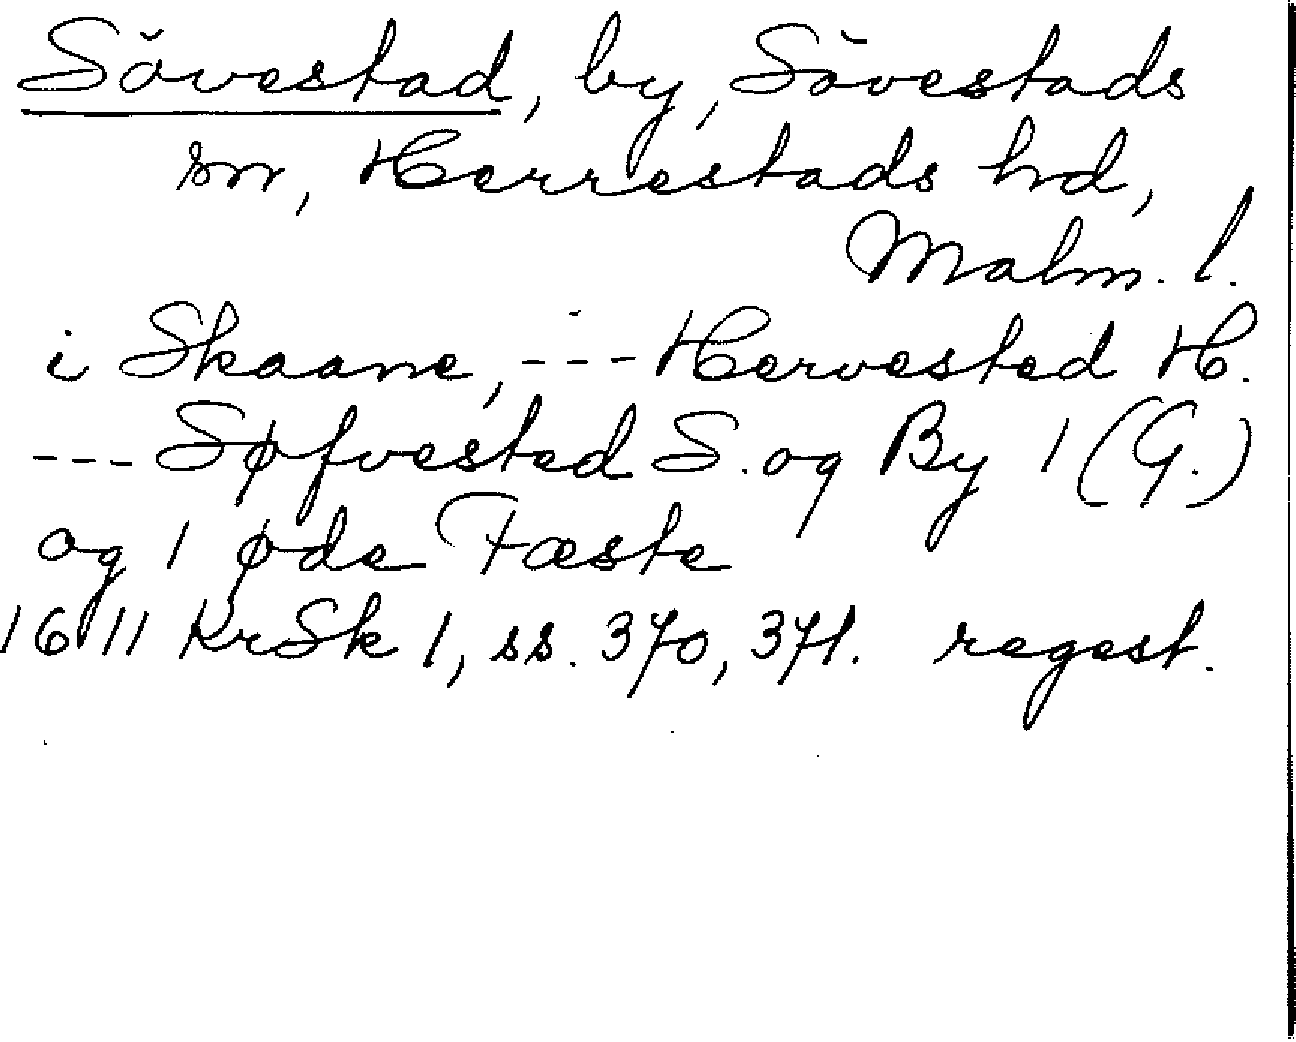 Sövestad, by, Sövestads
sn, Herrestads hd,
Malm. l.
i Skaane, --- Hervested H.
--- Søfvested S. og By 1 (G.)
og 1 øde Fæste
1611 KrSk 1, ss. 370, 371. regest.